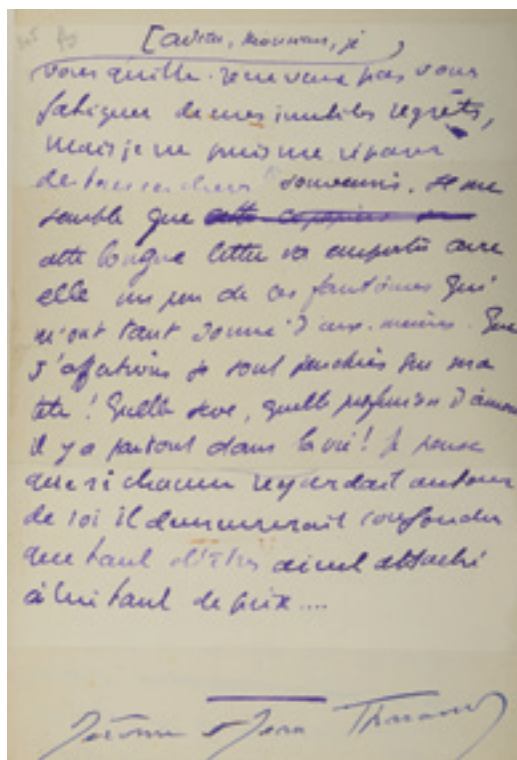 [adieu, monsieur, je
vous quitte. Je ne veux pas vous
fatiguer de mes inutiles regrets,
mais je ne puis me séparer
de tous ces chers souvenirs. Il me
semble que
cette longue lettre va emporter avec
elle un peu de ces fantômes qui
m'ont tant donné d'eux-mêmes. Que
d'affections se sont penchées sur ma
tête ! Quelle sève, quelle profusion d'amour
il y a partout dans la vie ! Je pense
que si chacun regardait autour
de soi il demeurerait confondu
que tant d'êtres aient attaché
à lui tant de prix ....
Jérôme et Jean Tharaud